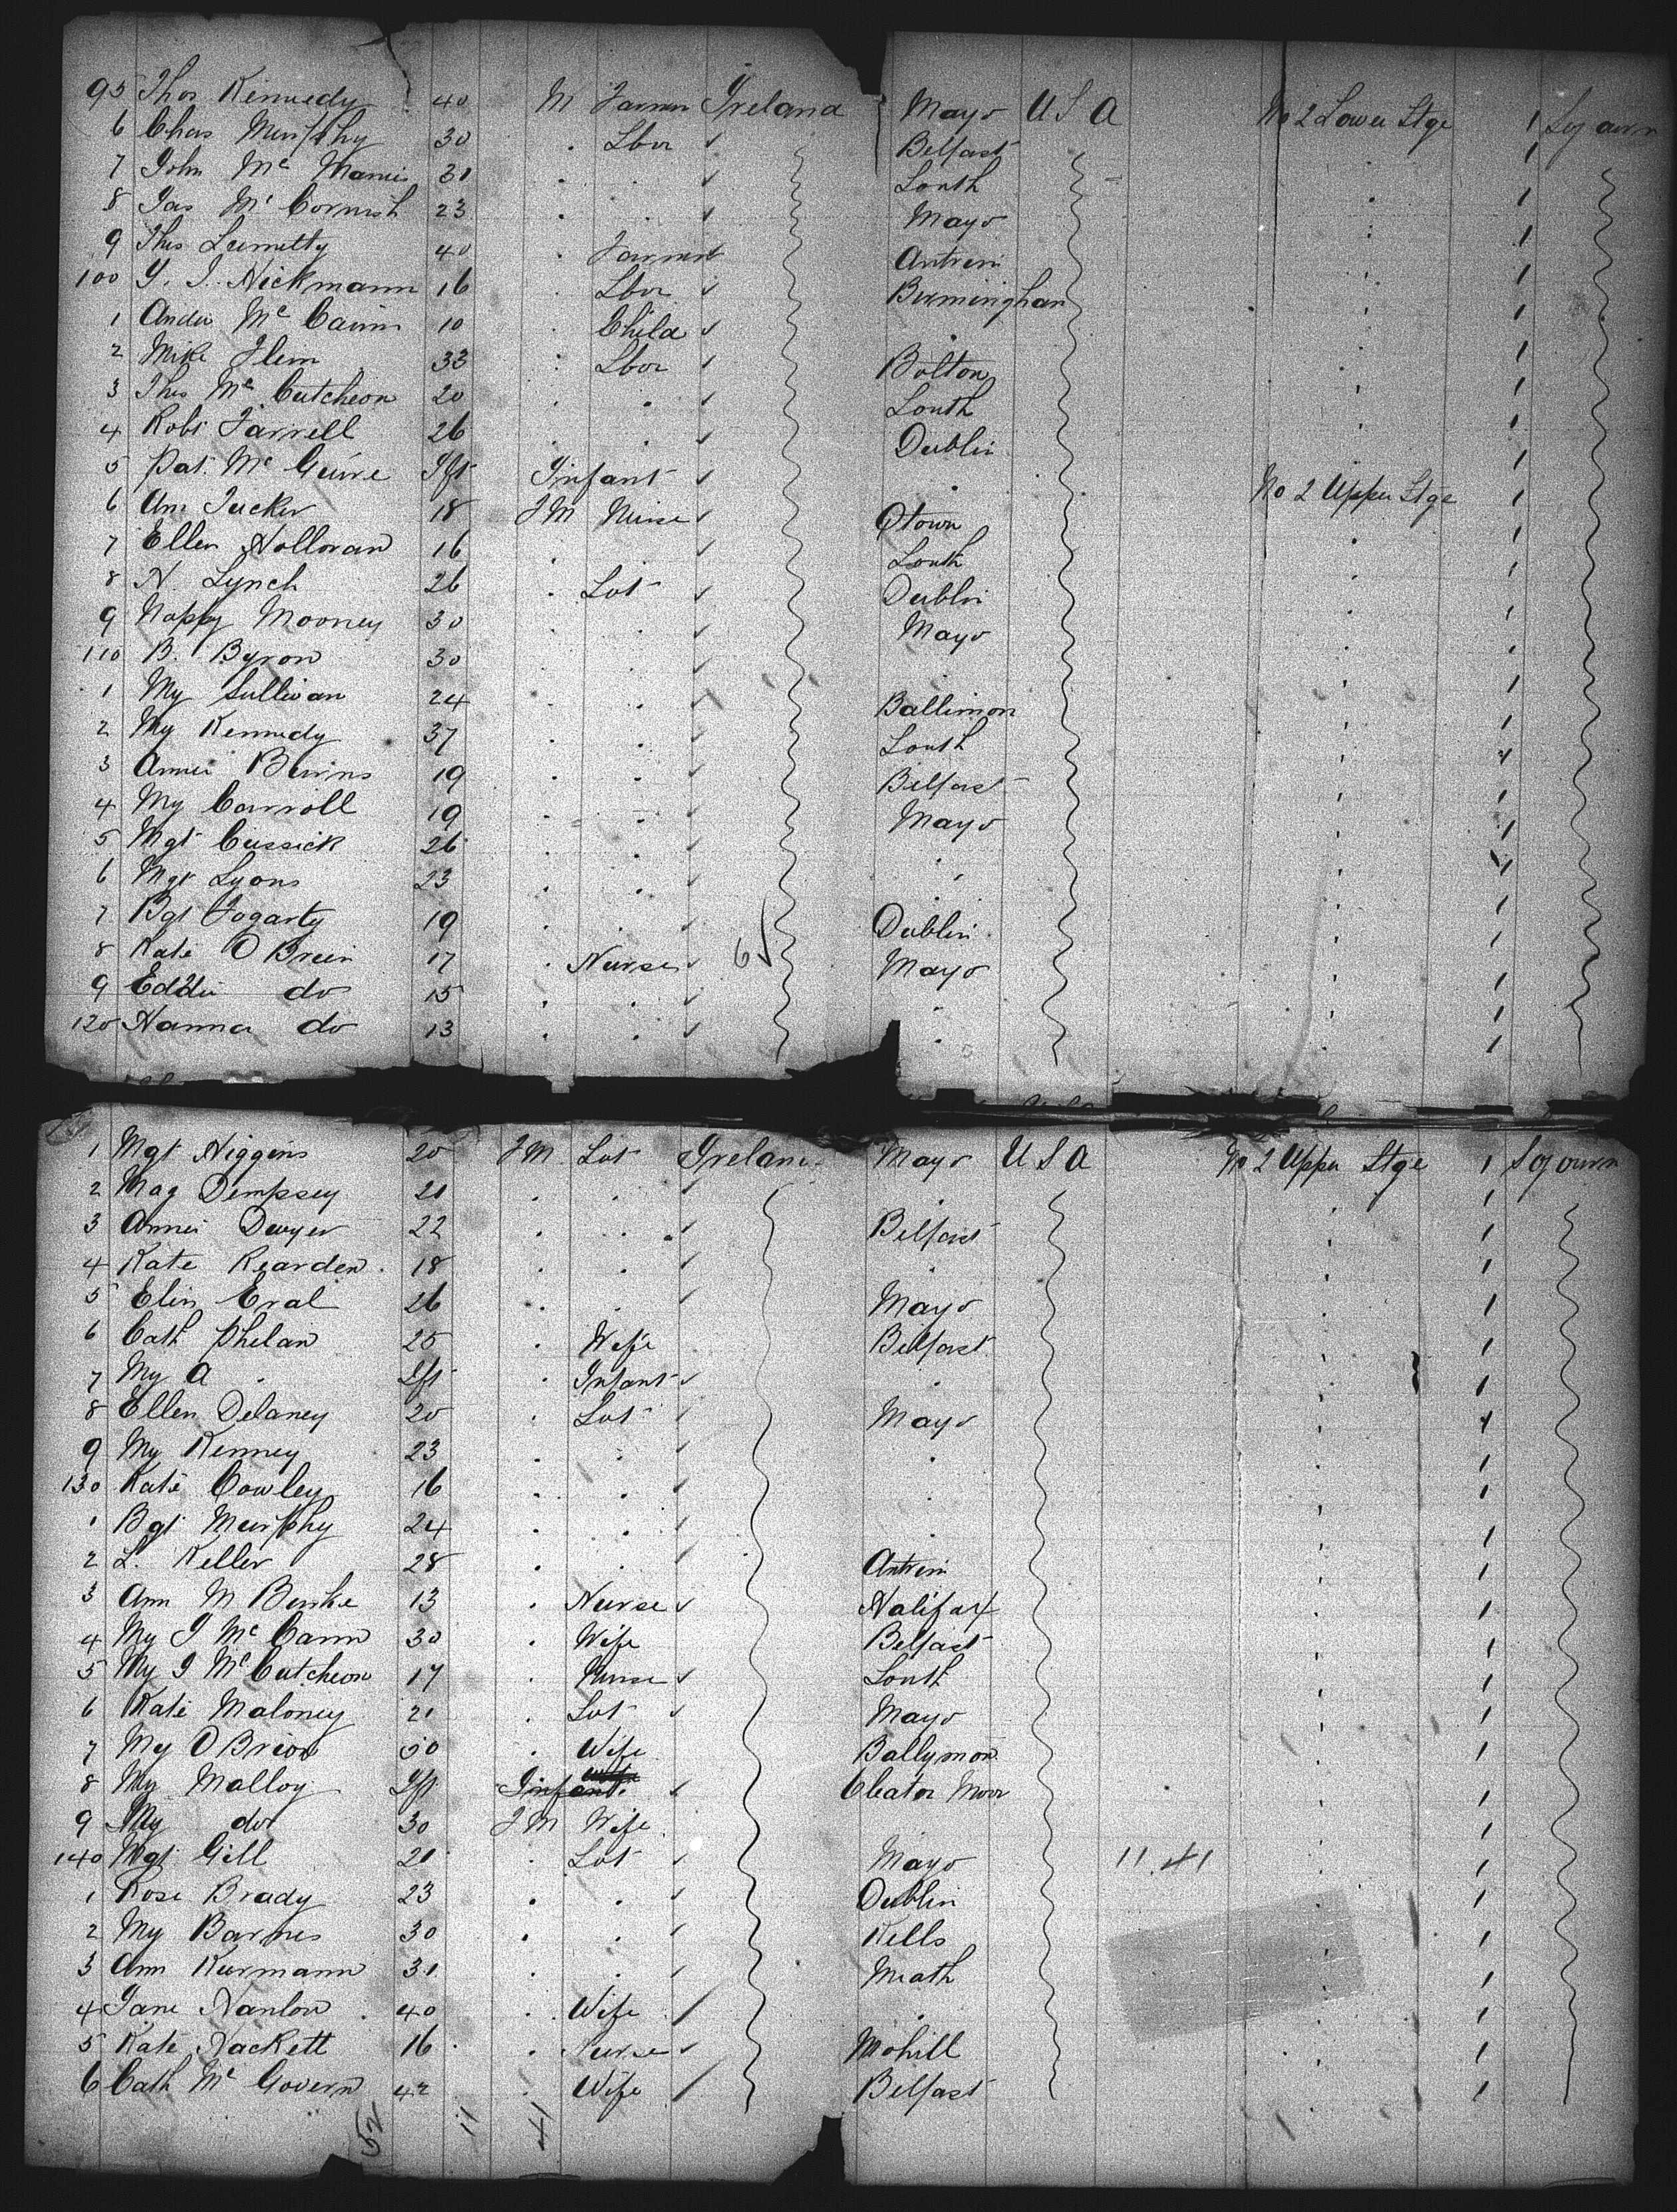 95 Thos Kennedy 40 M Farmer Ireland Mayo U S A No 2 Lower Stge 1 Sojourn
6 Chas Murphy 30 . Lbor Belfast 1
7 John Mc Manus 31 . . Louth . 1
8 Jas Mc Cormish 23 . . Mayo 1
9 Thos 40 . Farmer Antrim 1
100 Y. J. Hickmann 16 . Lbor Birmingham 1
1 Andw Mc Cann 10 . Child . 1
2 Mike Flinn 33 . Lbor Bolton 1
3 Thos Mc Cutcheon 20 . . Louth 1
4 Robt Farrell 26 . . Dublin 1
5 Pat. Mc Guire Ift Infant . No 2 Upper Stge 1
6 Ann Tucker 18 F M Nurse Qtown . 1
7 Ellen Holloran 16 . . Louth . 1
8 N. Lynch 26 . Lot Dublin . 1
9 Nappy Mooney 30 . . Mayo . 1
110 B. Byron 30 . . . 1
1 My Sullivan 24 . . Ballimon . 1
2 My Kennedy 37 . . Louth . 1
3 Annie Burns 19 . . Belfast . 1
4 My Carroll 19 . . Mayo . 1
5 Mgt Cussick 26 . . . . 1
6 Mgt Lyons 23 . . . . 1
7 Bgt Fogarty 19 . . Dublin . 1
8 Kate O Brien 17 . Nurse 6 Mayo . 1
9 Eddie do 15 . . . . 1
120 Hanna do 13 . . . . 1
1 Mgt Higgins 20 F M Lot Ireland Mayo U S A No 2 Upper Stge 1 Sojourn
2 Mag Dempsey 21 . . . . 1
3 Annie Dwyer 22 . . Belfast . 1
4 Kate Rearden 18 . . . . 1
5 Elin Eral 26 . . Mayo . 1
6 Cath Phelan 25 . Wife Belfast . 1
7 My A . Ift . Infant . . 1
8 Ellen Delaney 20 . Lot Mayo . 1
9 My Kenney 23 . . . . 1
130 Kate Cowley 16 . . . . 1
1 Bgt Murphy 24 . . . . 1
2 L. Keller 28 . . Antrim . 1
3 Ann M Burke 13 . Nurse Halifax . 1
4 My J Mc Cann 30 . Wife Belfast . 1
5 My J Mc Cutcheon 17 . Nurse Louth . 1
6 Kate Maloney 21 . Lot Mayo . 1
7 My O Brien 50 . Wife Ballymon . 1
8 My Malloy Ift Infant. Cleator Moor . 1
9 My do 30 F M Wife . 1
140 Mgt Gill 21 . Lot Mayo 11.41 . 1
1 Rose Brady 23 . . Dublin . 1
2 My Barnes 30 . . Kells . 1
3 Ann Kurmann 31 . . Meath . 1
4 Jane Hanlon 40 . Wife . . 1
5 Kate Hackett 16 . Nurse Mohill . 1
6 Cath Mc Govern 42 . Wife Belfast . 1
52 11 41